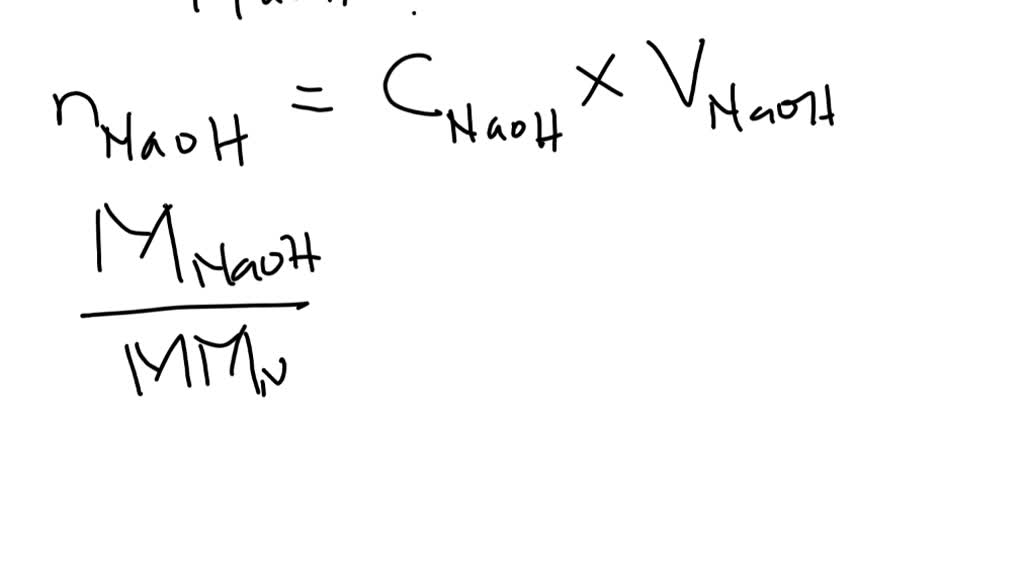 n NaOH = C NaOH × V NaOH
M NaOH
MM N